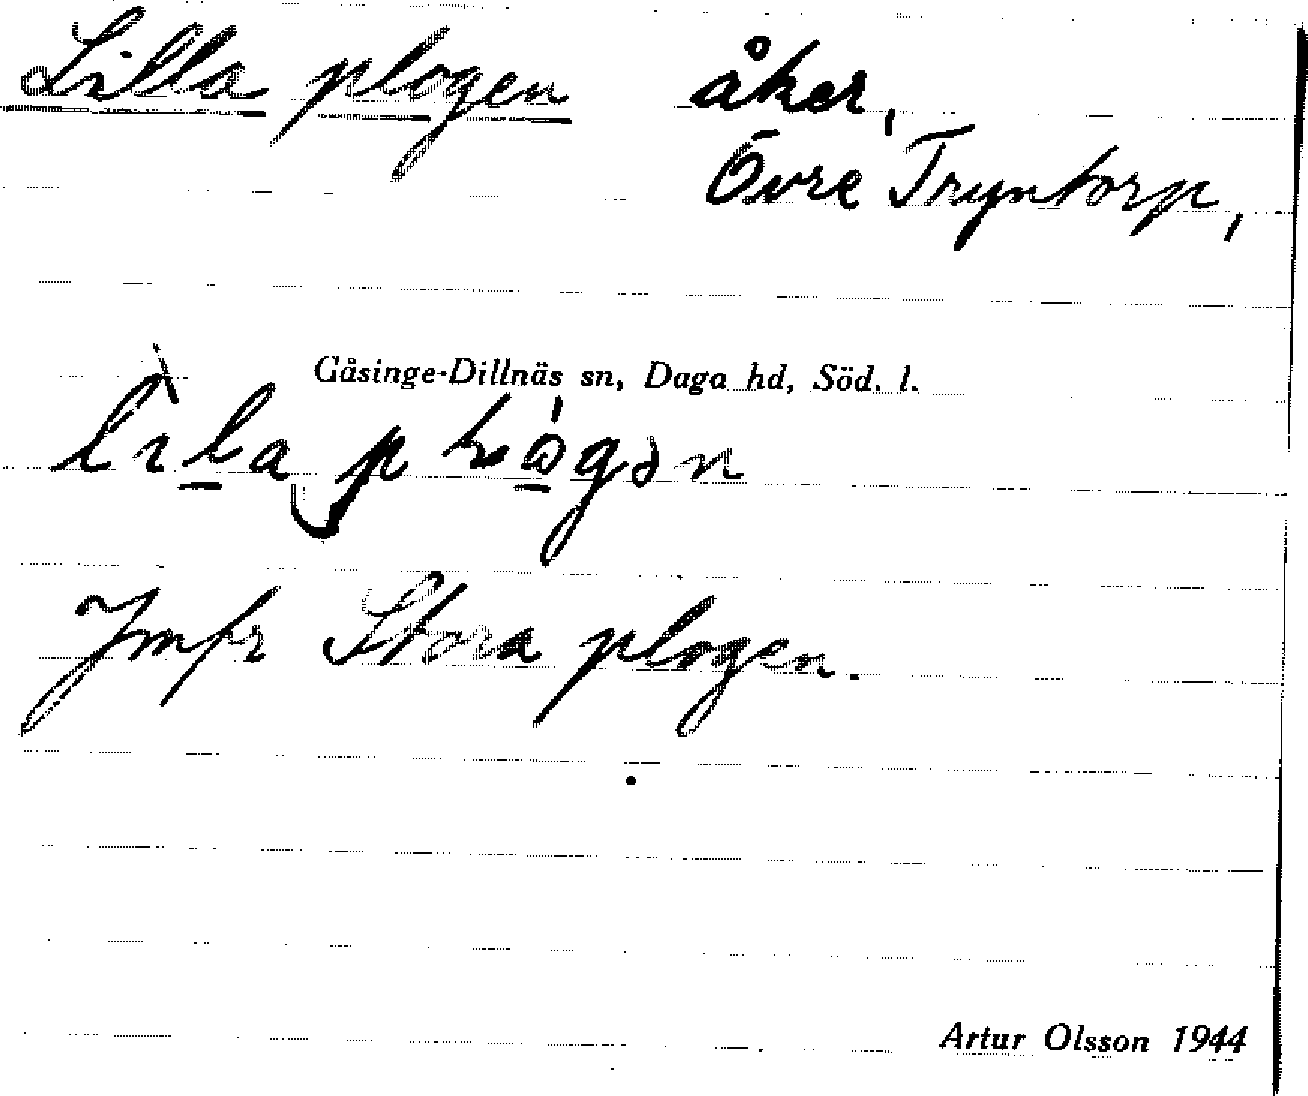 Lilla plogen åker,
Övre Tryntorp,
Gåsinge-Dillnäs sn, Daga hd, Söd. l.
Jmfr Stora plogen.
Artur Olsson 1944